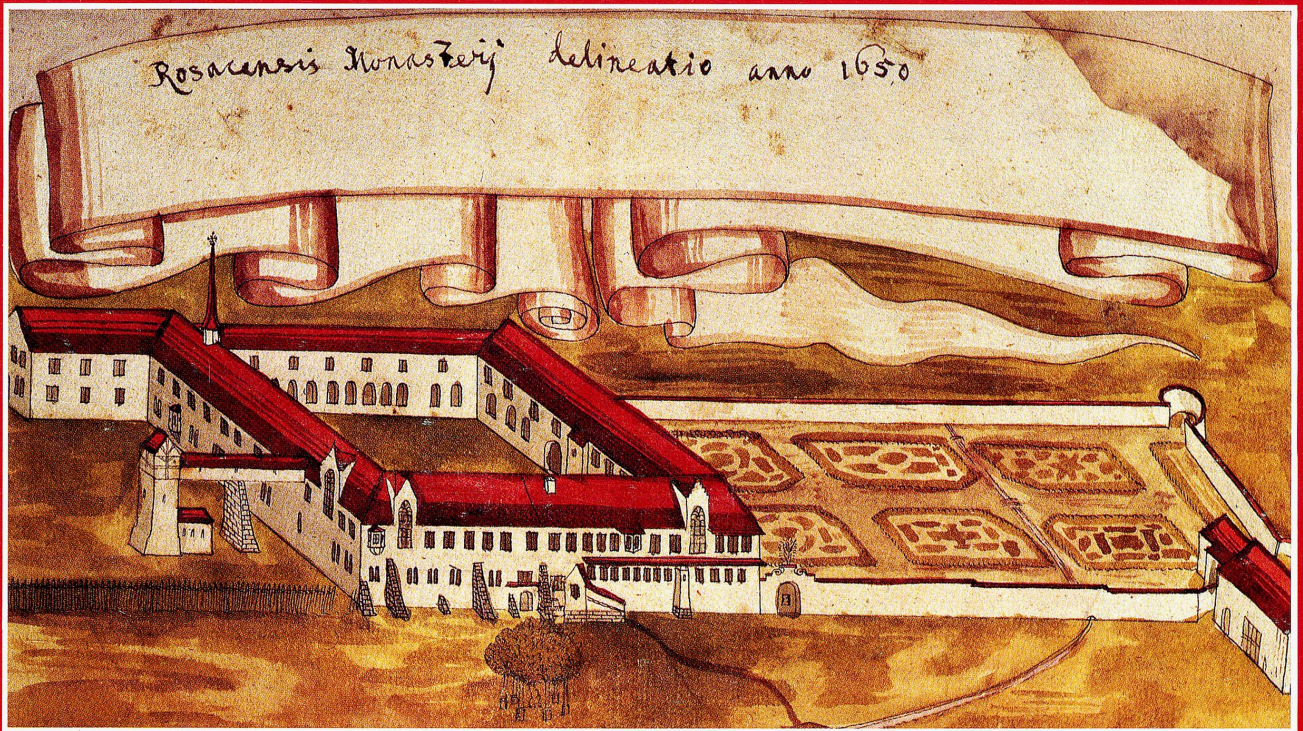 Rosacensis Monasterij delineatio anno 1650